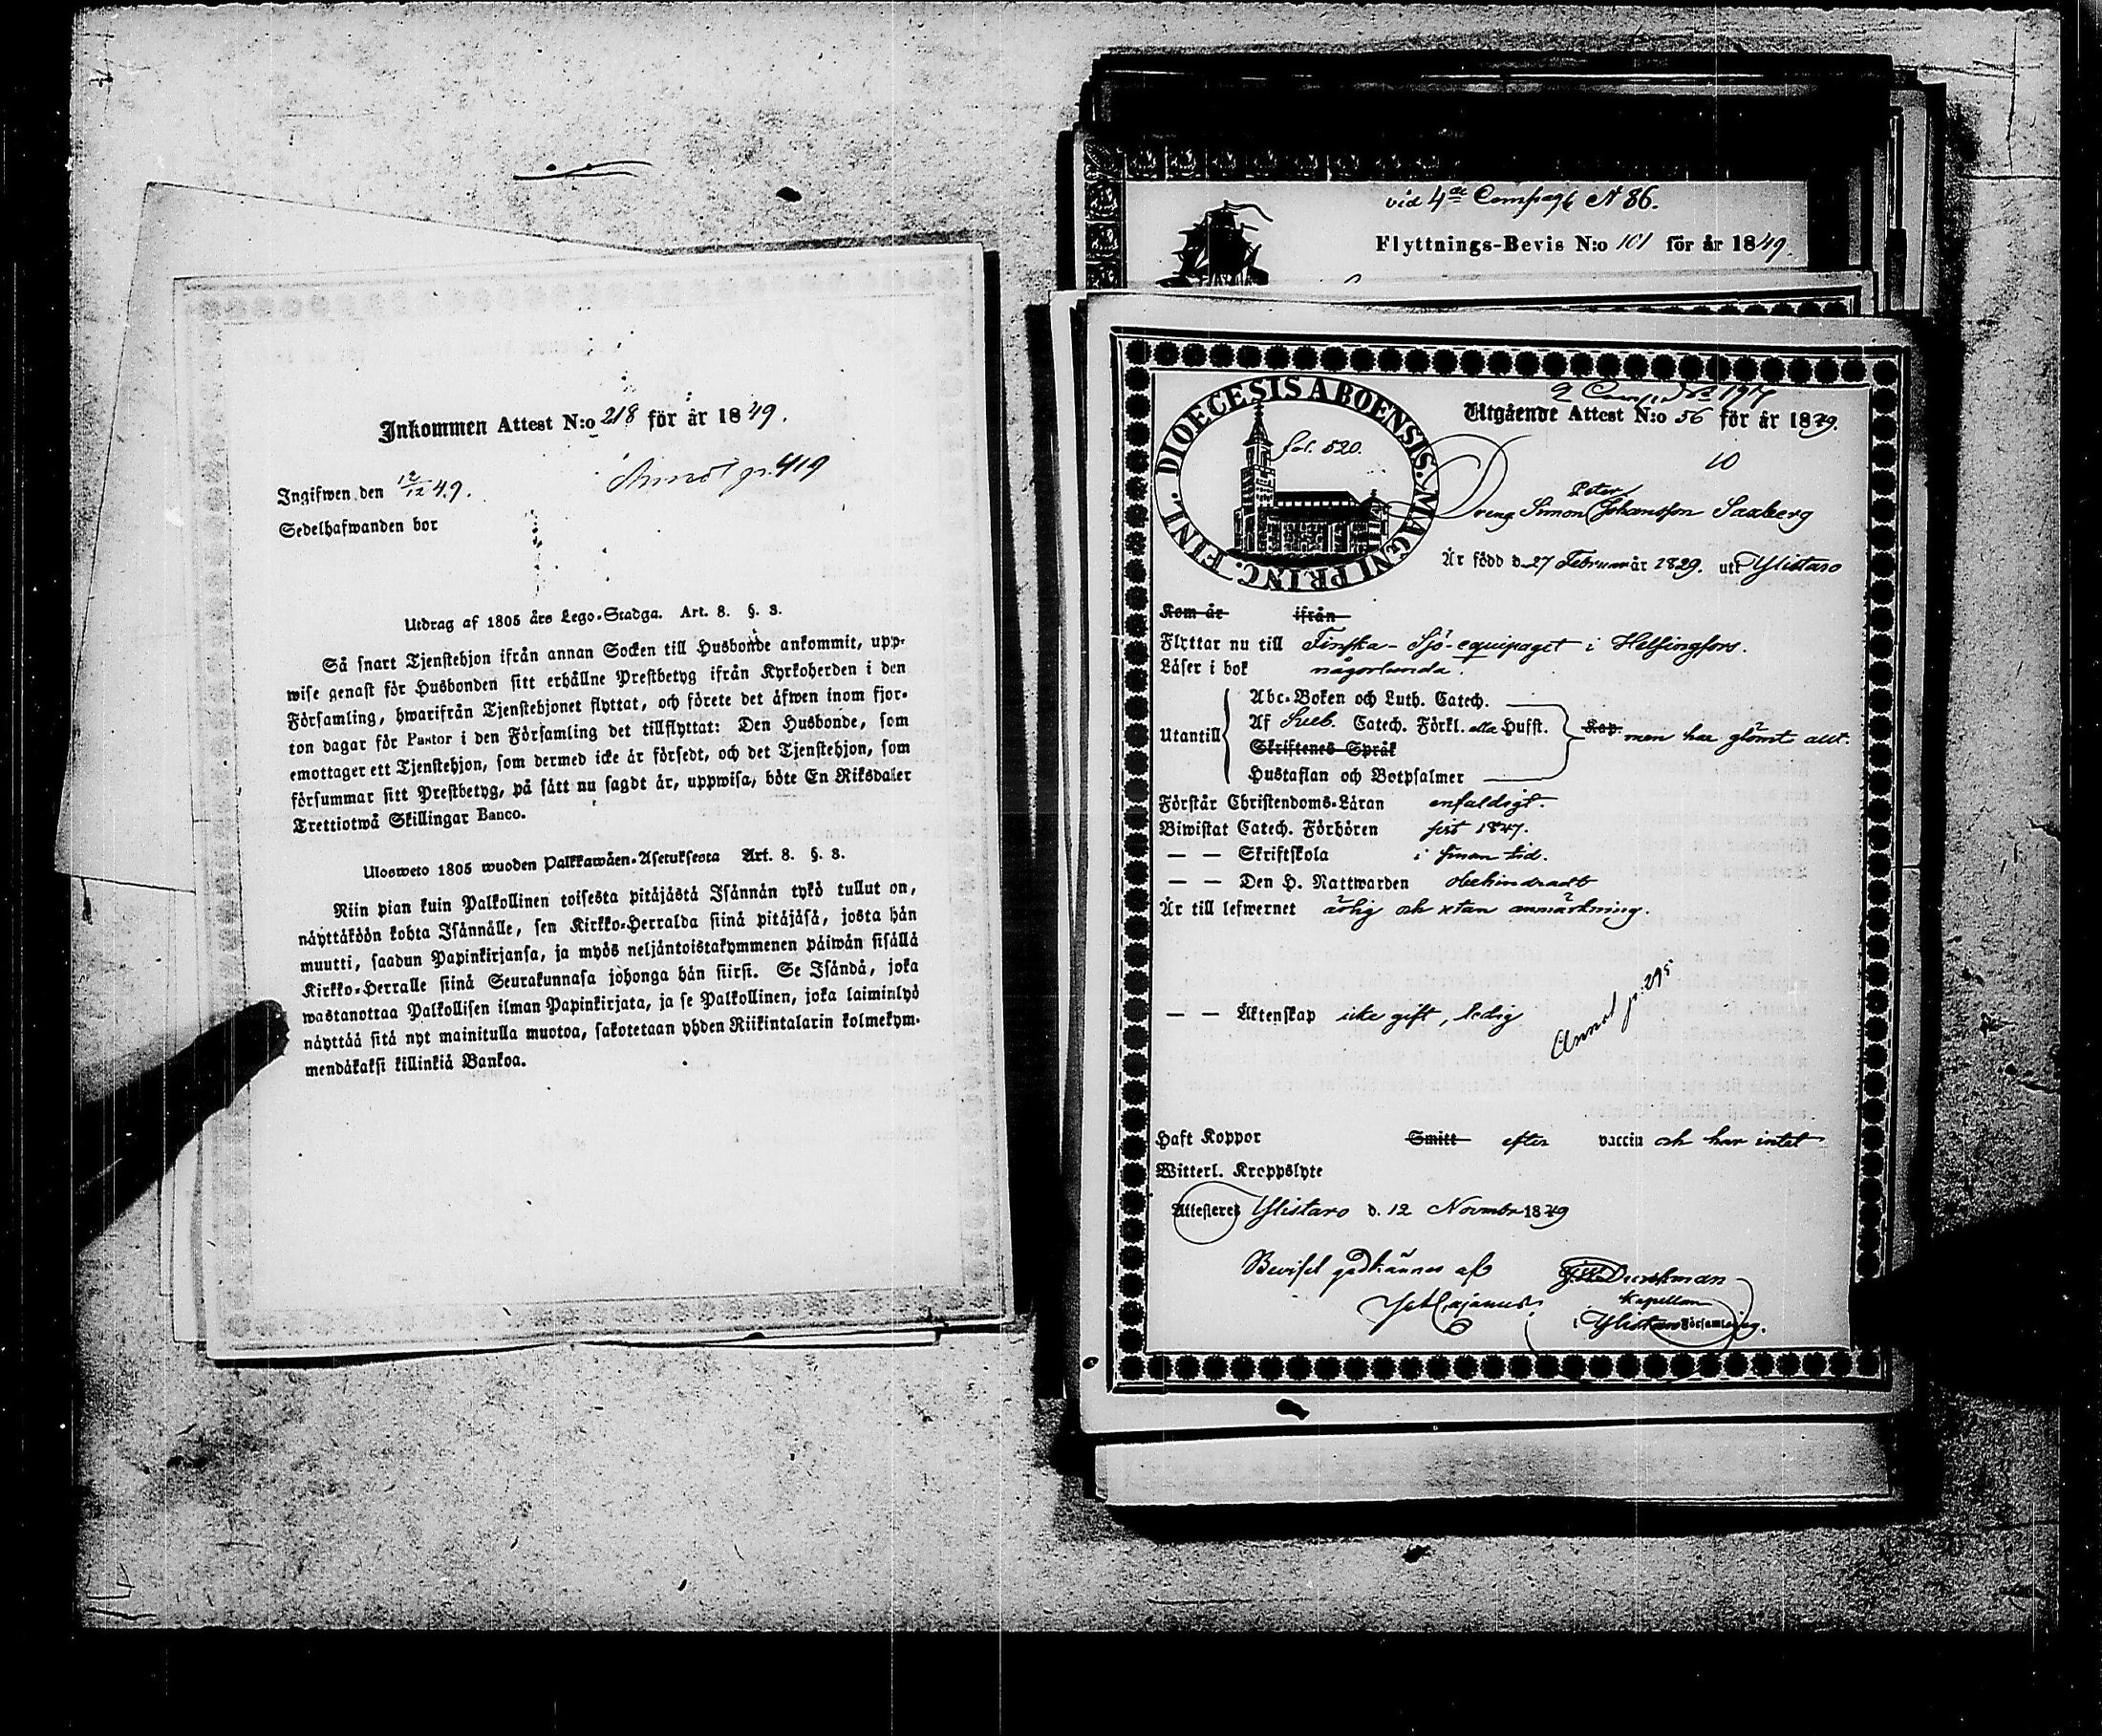 Inkommen Attest N:o 218 för år 1849.
Ingifwen den 12/12 49.
Sedelhafwanden bor
Utdrag af 1805 års Lego-Stadga. Art. 8. §. 3.
Så snart Tjenstehjon ifrån annan Socken till Husbonde ankommit, upp-
wise genast för Husbonden sitt erhållne Prestbetyg ifrån Kyrkoherden i den
Församling, hwarifrån Tjenstehjonet flyttat, och förete det äfwen inom fjor-
ton dagar för Pastor i den Församling det tillflyttat: Den Husbonde, som
emottager ett Tjenstehjon, som dermed icke är försedt, och det Tjenstehjon, som
försummar sitt Prestbetyg, på sätt nu sagdt är, uppwisa, böte En Riksdaler
Trettiotwå Skillingar Banco.
Ulosweto 1805 wuoden Palkkawäen-Asetuksesta Art. 8. §. 3.
Niin pian kuin Palkollinen toisesta pitäjästä Isännän tykö tullut on,
näyttäköön kohta Isännälle, sen Kirkko-Herralda siinä pitäjäsä, josta hän
muutti, saadun Papinkirjansa, ja myös neljäntoistakymmenen päiwän sisällä
Kirkko-Herralle siinä Seurakunnasa johonga hän siirsi. Se Isändä, joka
wastanottaa Palkollisen ilman Papinkirjata, ja se Palkollinen, joka laiminlyö
näyttää sitä nyt mainitulla muotoa, sakotetaan yhden Riikintalarin kolmekym-
mendäkaksi killinkiä Bankoa.
vid 4de Compagt N 86.
Flyttnings-Bevis N:o 101 för år 1849.
DIOECESIS ABOENSIS. MAGNI PRINC. FINL.
fol. 520.
2 Comp. No 1917
Utgående Attest N:o 56 för år 1849.
10
Peter
Dreng Simon Johansson Saxberg
Är född d. 27 Februari år 1829. uti Ylistaro
Kom år ifrån
Flyttar nu till Finska-Sjö-equipaget i Helsingfors.
Läser i bok någorlunda.
Utantill
Abc-Boken och Luth. Catech.
Af Sveb. Catech. Förkl. alla Hufst.
Skriftenes Språk
Hustaflan och Botpsalmer
Kap. men har glömt allt.
Förstår Christendoms-Läran enfaldigt.
Biwistat Catech. Förhören sist 1847.
— — Skriftskola i sinom tid.
— — Den H. Nattwarden obehindradt
Är till lefwernet ärlig och utan anmärkning.
— — Äktenskap icke gift, ledig
Annot p. 295
Haft Koppor Smitt efter vaccin och har intet
Witterl. Kroppslyte
Attesteres Ylistaro d. 12 Novmbr 1849
Beviset godkännes af
Kapellan
i Ylistaro Församling.